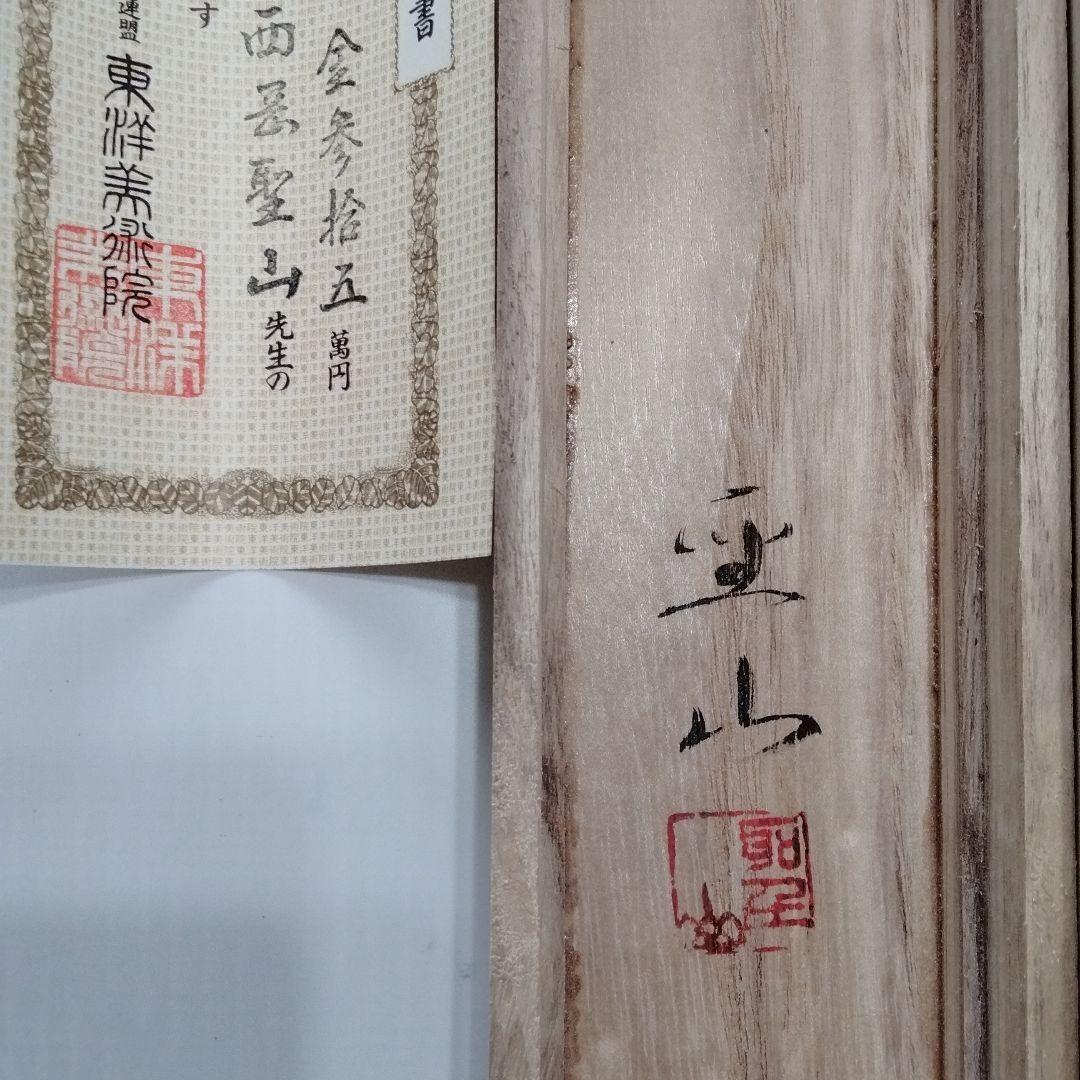 書
金参拾五萬円
西岳聖山先生の
す
連盟 東洋美術院
東洋美術院
聖山
聖山